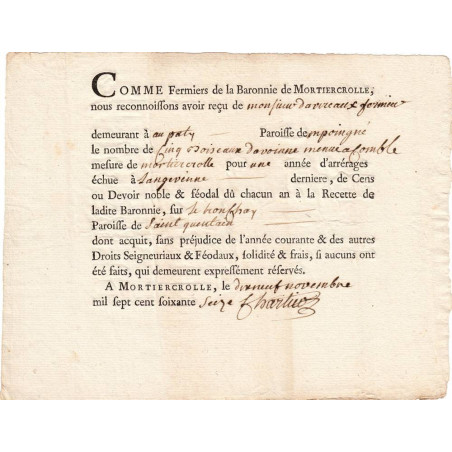 COMME Fermiers de la Baronnie de MORTIERCROLLE,
nous reconnoissons avoir reçu de monsieur
demeurant à au paty Paroisse de mpoingné
le nombre de cinq Boiseaux davoinne menue a comble
mesure de mortiercrolle pour une année d'arrérages
échue à Langevinne derniere, de Cens
ou Devoir noble & féodal dû chacun an à la Recette de
ladite Baronnie, sur le
Paroisse de Saint quentain
dont acquit, sans préjudice de l'année courante & des autres
Droits Seigneuriaux & Féodaux, solidité & frais, si aucuns ont
été faits, qui demeurent expressément réservés.
A MORTIERCROLLE, le dixneuf novembre
mil sept cent soixante seize